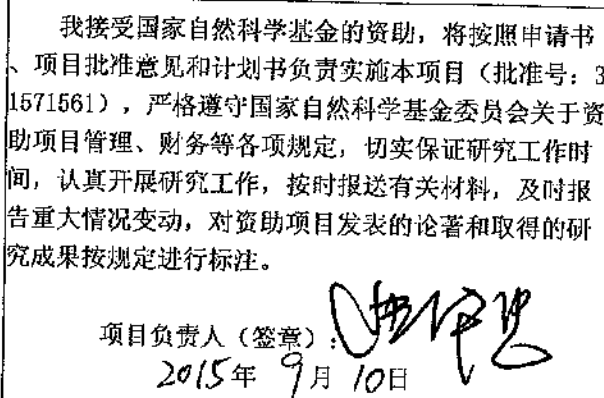 我接受国家自然科学基金的资助，将按照申请书
、项目批准意见和计划书负责实施本项目（批准号：3
1571561），严格遵守国家自然科学基金委员会关于资
助项目管理、财务等各项规定，切实保证研究工作时
间，认真开展研究工作，按时报送有关材料，及时报
告重大情况变动，对资助项目发表的论著和取得的研
究成果按规定进行标注。
项目负责人（签章）：
2015年 9月 10日